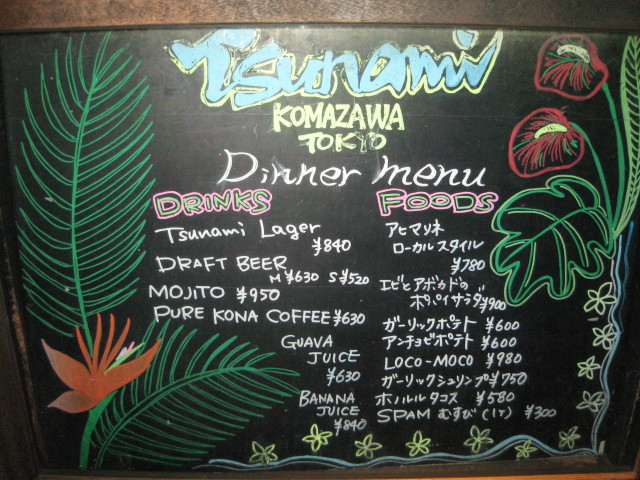 Tsunami
KOMAZAWA
TOKYO
Dinner menu
DRINKS
Tsunami Lager
¥840
DRAFT BEER
M ¥630 S ¥520
MOJITO ¥950
PURE KONA COFFEE ¥630
GUAVA
JUICE
¥630
BANANA
JUICE
¥840
FOODS
アヒマリネ
ローカルスタイル
¥780
エビとアボカドの
ポパイサラダ ¥900
ガーリックポテト ¥600
アンチョビポテト ¥600
LOCO-MOCO ¥980
ガーリックシュリンプ ¥750
ホノルルタコス ¥580
SPAM むすび (1ヶ) ¥300